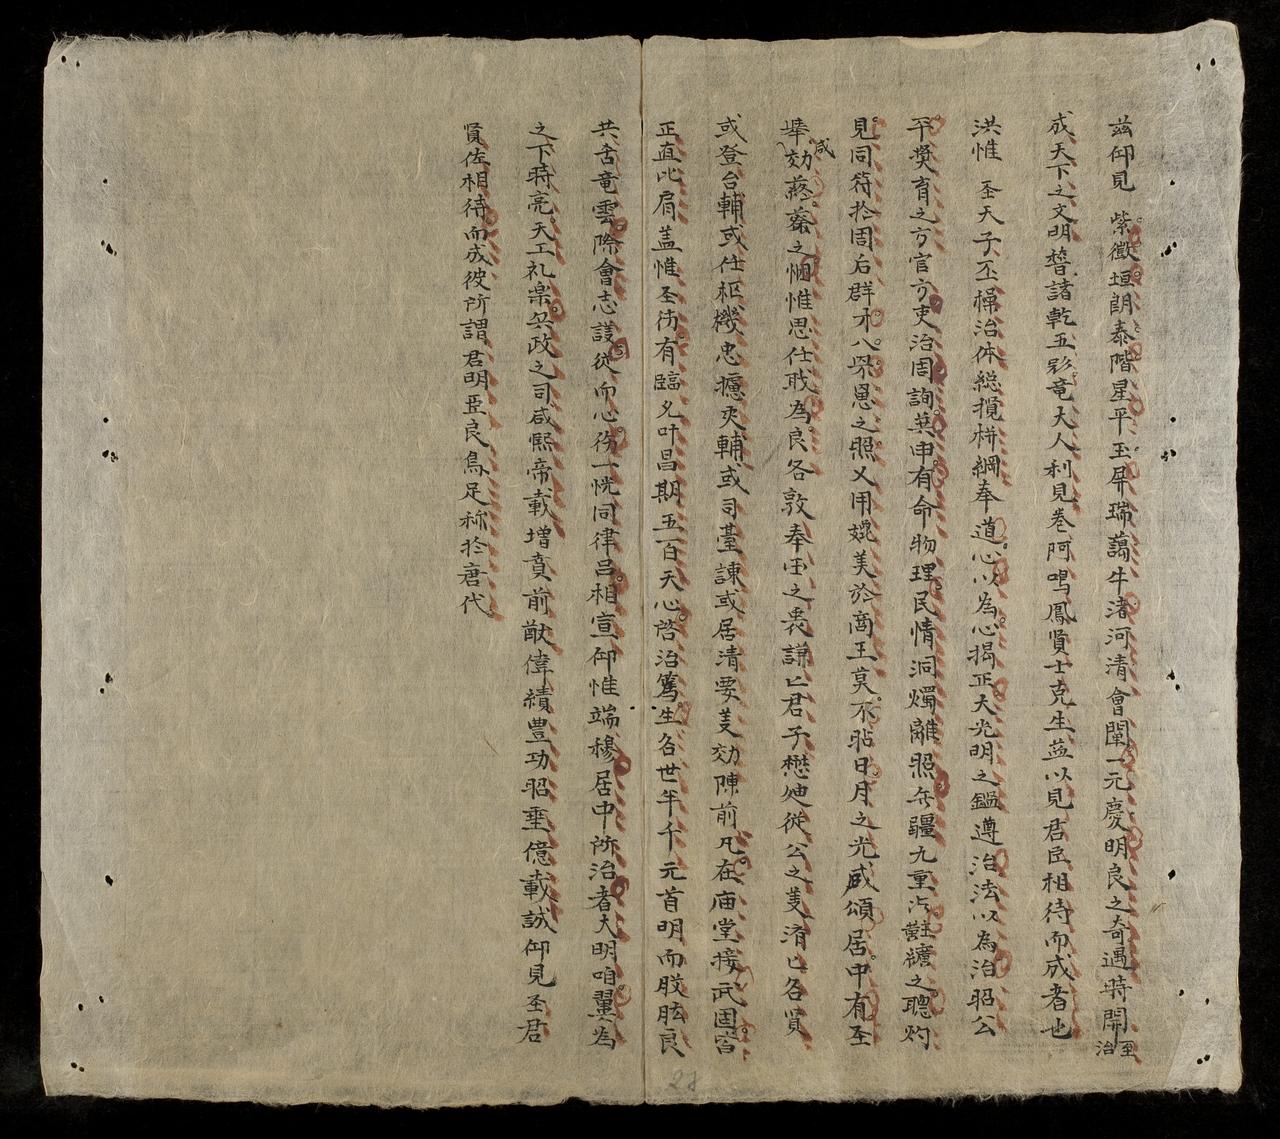 茲仰見 紫薇垣朗泰階星平玉屏瑞藹牛渚河清會闡一元慶明良之奇遇時開至治
成天下之文明聱諸乾五彩竜大人利見巻阿鳴鳳賢士克生益以見君臣相待而成者也
洪惟 圣天子丕擢治体総攬栟綱奉道心以為心揭正大光明之鑑遵治法以為治昭公
平奬育之方官方吏治周詢葉申有命物理民情洞燭離照無疆九重𣲖黈纊之聰灼
見同符於周后群才八栄恩之照乂用媲美於商王莫不昭日月之光咸頌居中有圣
咸擧効蔠䕫之悃惟思仕戝為良各敦奉囯之衷謙匕君子懋迪從公之美濟匕各賢
或登台輔或仕枢機忠攄夾輔或司臺諫或居清要美効陳前凡在庙堂接武固皆
正直比肩盖惟圣待有臨允叶昌期五百天心啓治篤生名世半千元首明而股肱良
共舌竜雲際會志謹從而心孚一恍同律呂相宣仰惟端穆居中所治者大明咱翼為
之下時亮天工礼楽兵政之司咸熙帝載增賁前猷偉績豊功昭垂億載誠仰見圣君
賢佐相待而成彼所謂君明臣良烏足称於唐代
28